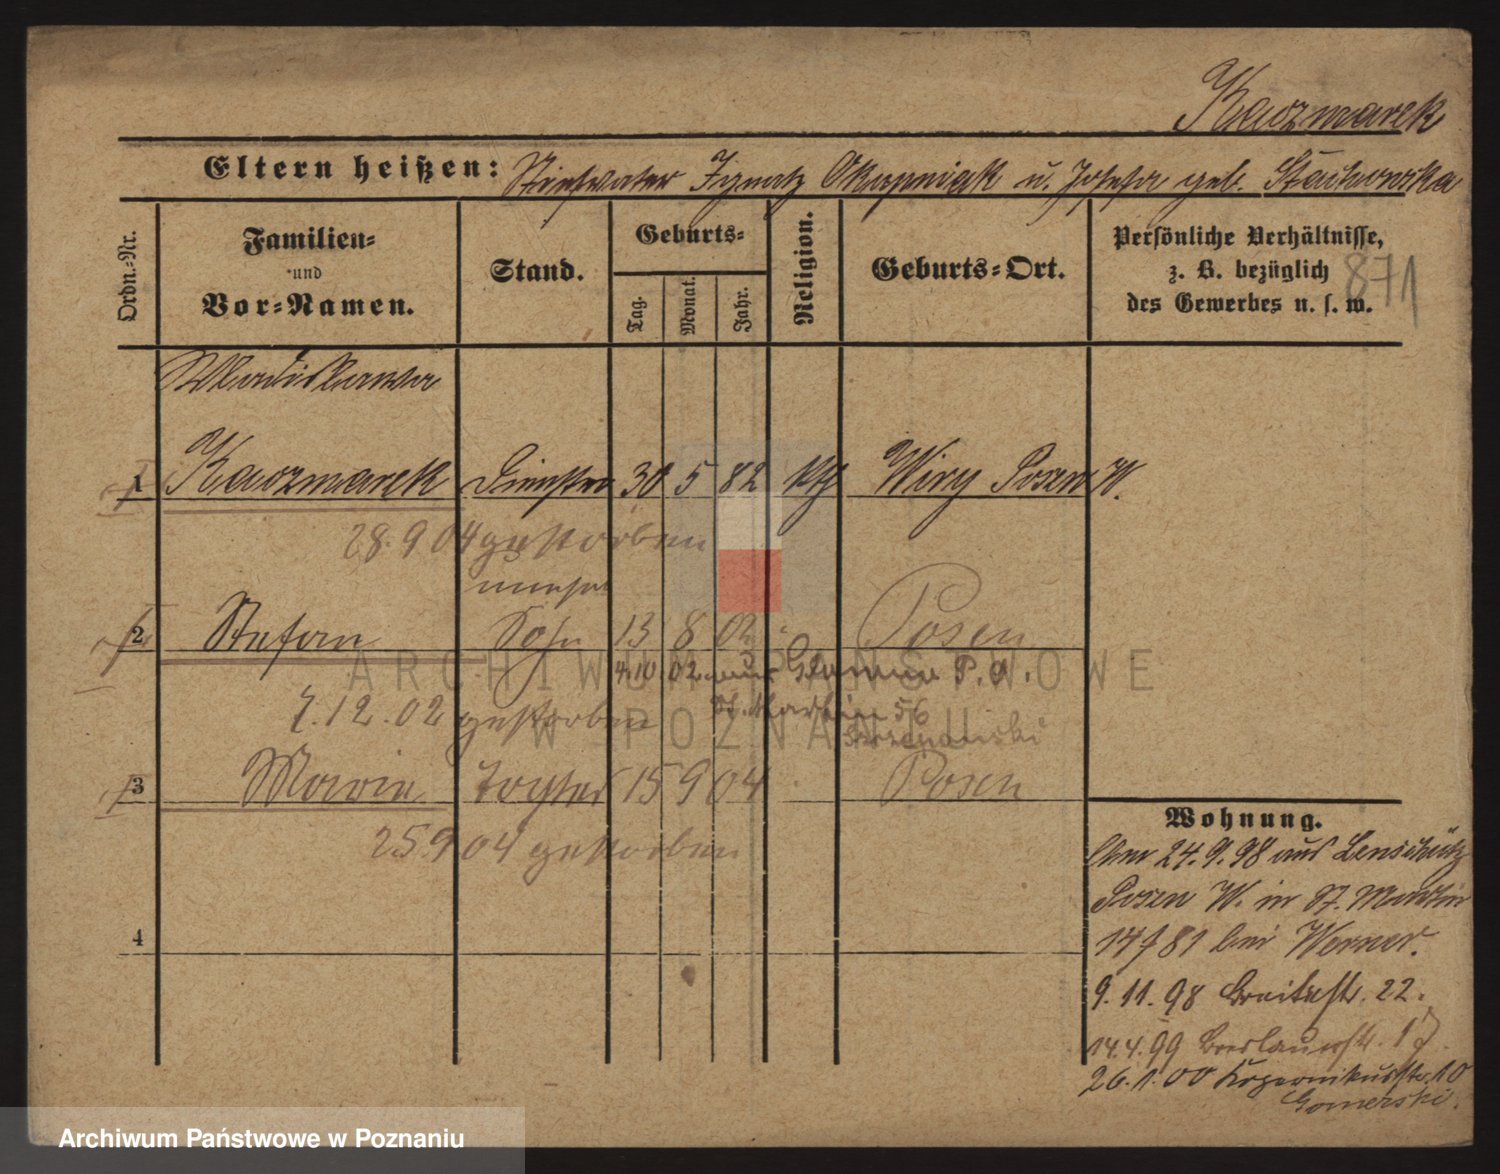 Kaczmarek
Eltern heißen: Stiefvater Ignatz Okupniak u. Josefa geb. Stachowska
Ordn.-Nr.
Familien-
und
Vor-Namen.
Stand.
Geburts-
Tag.
Monat.
Jahr.
Religion.
Geburts-Ort.
Persönliche Verhältnisse,
z. B. bezüglich
des Gewerbes u. s. w.
871
Wladislawa
1 Kaczmarek 30 5 82 kth Wiry Posen W.
28.9 04 gestorben
unehel
2 Stefan Sohn 13 8 02 Posen
4.10 02 aus P. A.
St. Martin 56
7.12.02 gestorben
3 Marie Tochter 15 9 04 Posen
25 9 04 gestorben
4
Wohnung.
24.9.98 aus
Posen W. in St. Martin
bei Werner.
9.11.98 Breitestr. 22.
14.4.99 Breslauerstr. 17
26.1.00 Kopernikusstr. 10
Gomerski.
ARCHIWUM PAŃSTWOWE
W POZNANIU
Archiwum Państwowe w Poznaniu